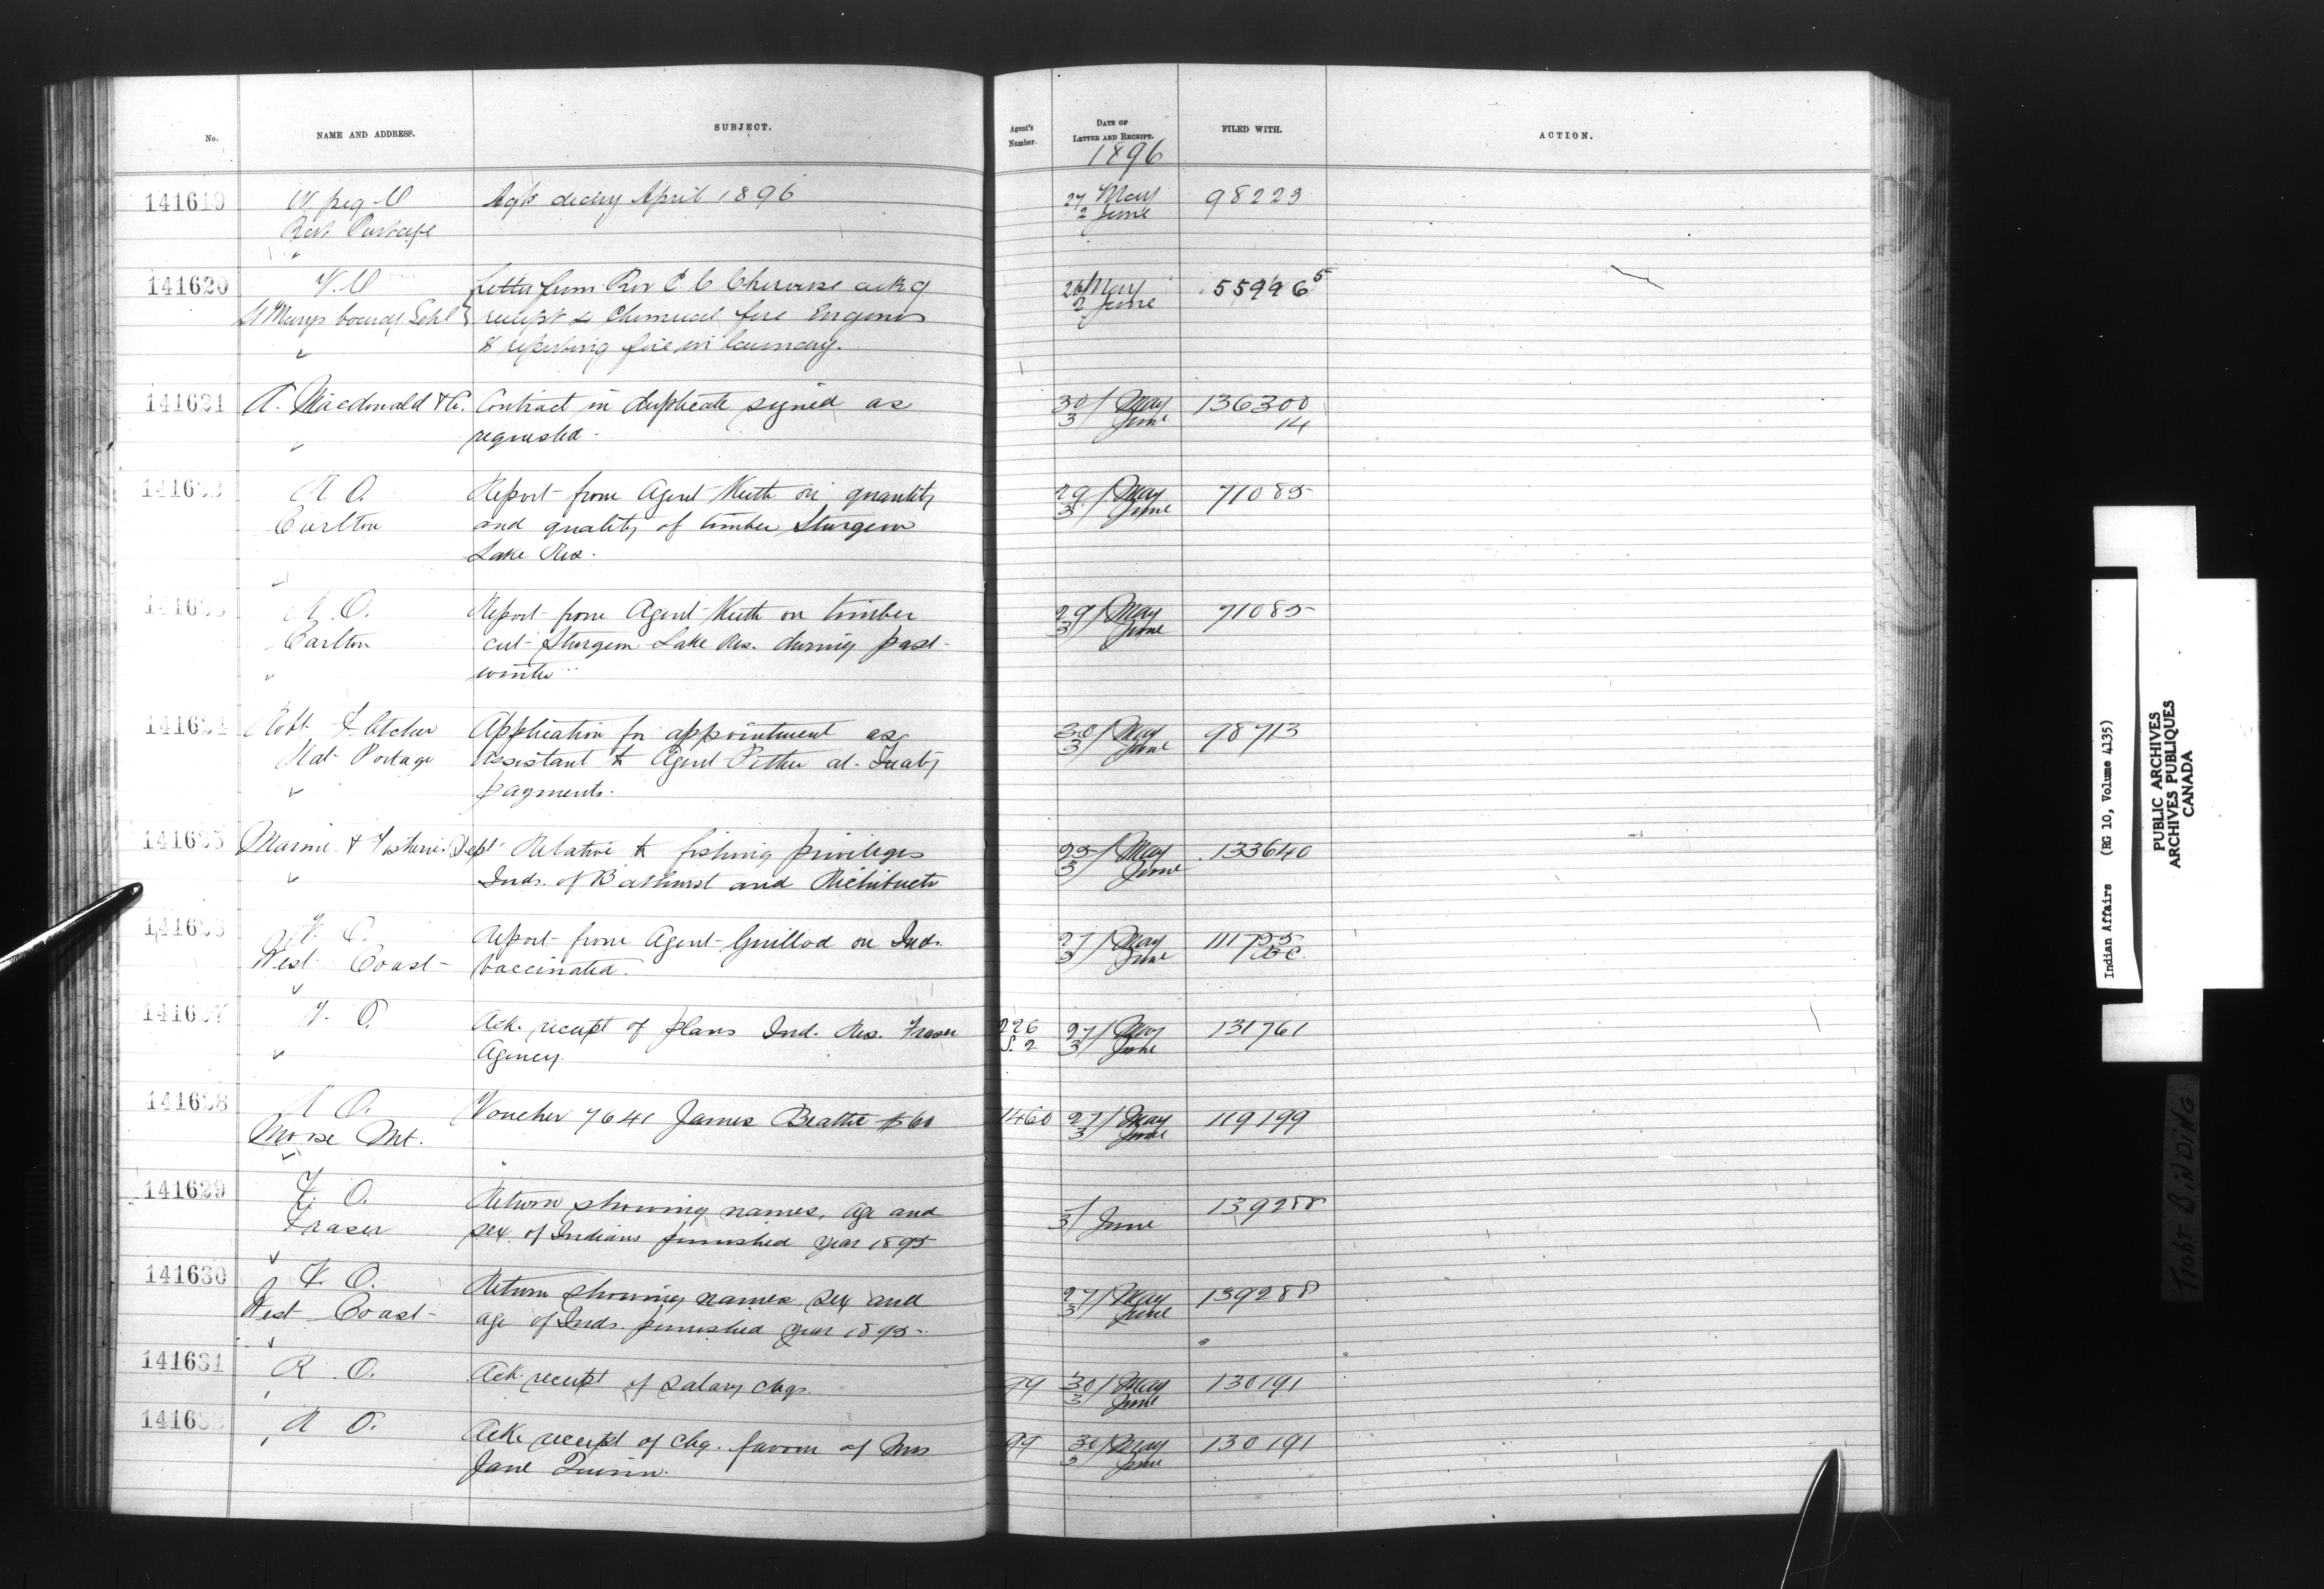 No.
NAME AND ADDRESS.
SUBJECT.
Agent's Number.
DATE OF LETTER AND RECEIPT.
FILED WITH.
ACTION.
1896
141619
W. peg O
Rat Portage
April 1896
27 May
2 June
98223
141620
V. O
St Marys Schl
Letter from Rev C. C. ackg
receipt Chemical fire Engines
& reporting fire in laundry.
26 May
2 June
55996 5
141621
A. Macdonald & Co.
Contract in duplicate signed as
requested.
30/ May
3/ June
136300
14
R O.
Carlton
Report from Agent Keith on quantity
and quality of timber Sturgeon
Lake Res.
29/ May
3/ June
71085
R. O.
Carlton
Report from Agent Keith on timber
cut Sturgeon Lake Res. during past
winter
29/ May
3/ June
71085
141624
Robt Fletcher
Rat Portage
Application for appointment as
Assistant to Agent Pither at Treaty
payments.
30/ May
3/ June
98713
141625
Marine & Fisheries Dept
Relative to fishing privileges
Inds. of Bathurst and Richibucto
25/ May
3/ June
133640
V. O.
West Coast
Report from Agent Guillod on Inds.
vaccinated.
27/ May
3/ June
111755
B C.
141627
V. O.
Ack. receipt of plans Ind. Res. Fraser
Agency.
226
S. 2
27/ May
3/ June
131761
141628
R O.
Moose Mt.
Voucher 7641 James Beattie $60
1460
27/ May
3/ June
119199
141629
V. O.
Fraser
Return showing names, age and
sex of Indians furnished year 1895
3/ June
139288
141630
V. O.
West Coast
Return showing names sex and
age of Inds. furnished year 1895.
27/ May
3/ June
139288
141631
R. O.
Ack. receipt of salary chqs.
99
30/ May
3/ June
130191
141632
R O.
Ack. receipt of chq. favour of Mrs
Jane Quinn.
99
30/ May
3 June
130191
Indian Affairs (RG 10, Volume 4135)
PUBLIC ARCHIVES
ARCHIVES PUBLIQUES
CANADA
TIGHT BINDING